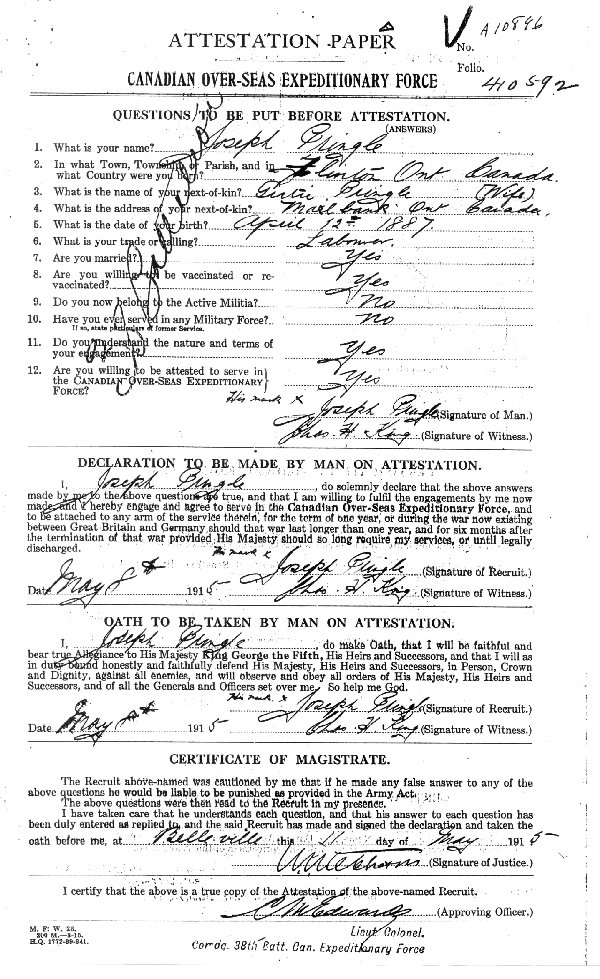 ATTESTATION PAPER
No. A10896
Folio. 410592
CANADIAN OVER-SEAS EXPEDITIONARY FORCE
QUESTIONS TO BE PUT BEFORE ATTESTATION.
(ANSWERS)
1. What is your name? Joseph Pringle
2. In what Town, Township or Parish, and in
what Country were you born? Flinton Ont Canada.
3. What is the name of your next-of-kin? Pringle (Wife)
4. What is the address of your next-of-kin? Ont Canada.
5. What is the date of your birth? April 12th 1887.
6. What is your trade or calling? Labourer.
7. Are you married? Yes
8. Are you willing to be vaccinated or re-
vaccinated? Yes
9. Do you now belong to the Active Militia? No
10. Have you ever served in any Military Force? No
If so, state particulars of former Service.
11. Do you understand the nature and terms of
your engagement? Yes
12. Are you willing to be attested to serve in
the CANADIAN OVER-SEAS EXPEDITIONARY
FORCE? Yes
His mark x
Joseph Pringle (Signature of Man.)
Chas. H. King (Signature of Witness.)
DECLARATION TO BE MADE BY MAN ON ATTESTATION.
I, Joseph Pringle, do solemnly declare that the above answers
made by me to the above questions are true, and that I am willing to fulfil the engagements by me now
made, and I hereby engage and agree to serve in the Canadian Over-Seas Expeditionary Force, and
to be attached to any arm of the service therein, for the term of one year, or during the war now existing
between Great Britain and Germany should that war last longer than one year, and for six months after
the termination of that war provided His Majesty should so long require my services, or until legally
discharged.
His mark x
Joseph Pringle (Signature of Recruit.)
Date May 8th 1915 Chas. H. King (Signature of Witness.)
OATH TO BE TAKEN BY MAN ON ATTESTATION.
I, Joseph Pringle, do make Oath, that I will be faithful and
bear true Allegiance to His Majesty King George the Fifth, His Heirs and Successors, and that I will as
in duty bound honestly and faithfully defend His Majesty, His Heirs and Successors, in Person, Crown
and Dignity, against all enemies, and will observe and obey all orders of His Majesty, His Heirs and
Successors, and of all the Generals and Officers set over me. So help me God.
His mark x
Joseph Pringle (Signature of Recruit.)
Date. May 8th 1915 Chas. H. King (Signature of Witness.)
CERTIFICATE OF MAGISTRATE.
The Recruit above-named was cautioned by me that if he made any false answer to any of the
above questions he would be liable to be punished as provided in the Army Act.
The above questions were then read to the Recruit in my presence.
I have taken care that he understands each question, and that his answer to each question has
been duly entered as replied to, and the said Recruit has made and signed the declaration and taken the
oath before me, at Belleville this 11 day of May 1915
(Signature of Justice.)
I certify that the above is a true copy of the Attestation of the above-named Recruit.
C M Edwards (Approving Officer.)
M. F. W. 23.
200 M.—3-15.
H.Q. 1772-39-841.
Lieut Colonel.
Comdg. 38th Batt. Can. Expeditionary Force